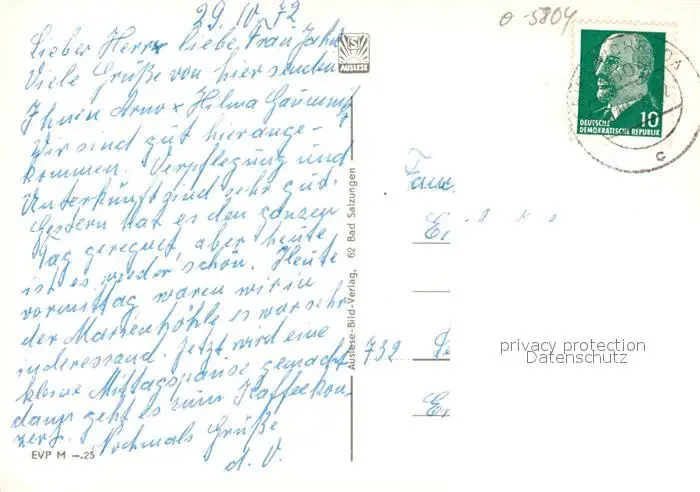 29.10.72
Lieber Herr x liebe Frau Jahn
Viele Grüße von hier senden
Ihnen Arno x Hilma
Wir sind gut hierange-
kommen. Verpflegung und
Unterkunft sind sehr gut.
Gestern hat es den ganzen
Tag geregnet, aber heute
ist es wieder schön. Heute
vormittag waren wir in
der Marienhöhle es war sehr
inderessand. Jetzt wird eine
kleine Mittagspause gemacht
dann geht es zum Kaffeekon-
zerz. Nochmals Grüße
d. O.
EVP M –.25
AUSLESE
Auslese-Bild-Verlag, 62 Bad Salzungen
o 5804
10
DEUTSCHE
DEMOKRATISCHE REPUBLIK
c
Fam.
732
privacy protection
Datenschutz